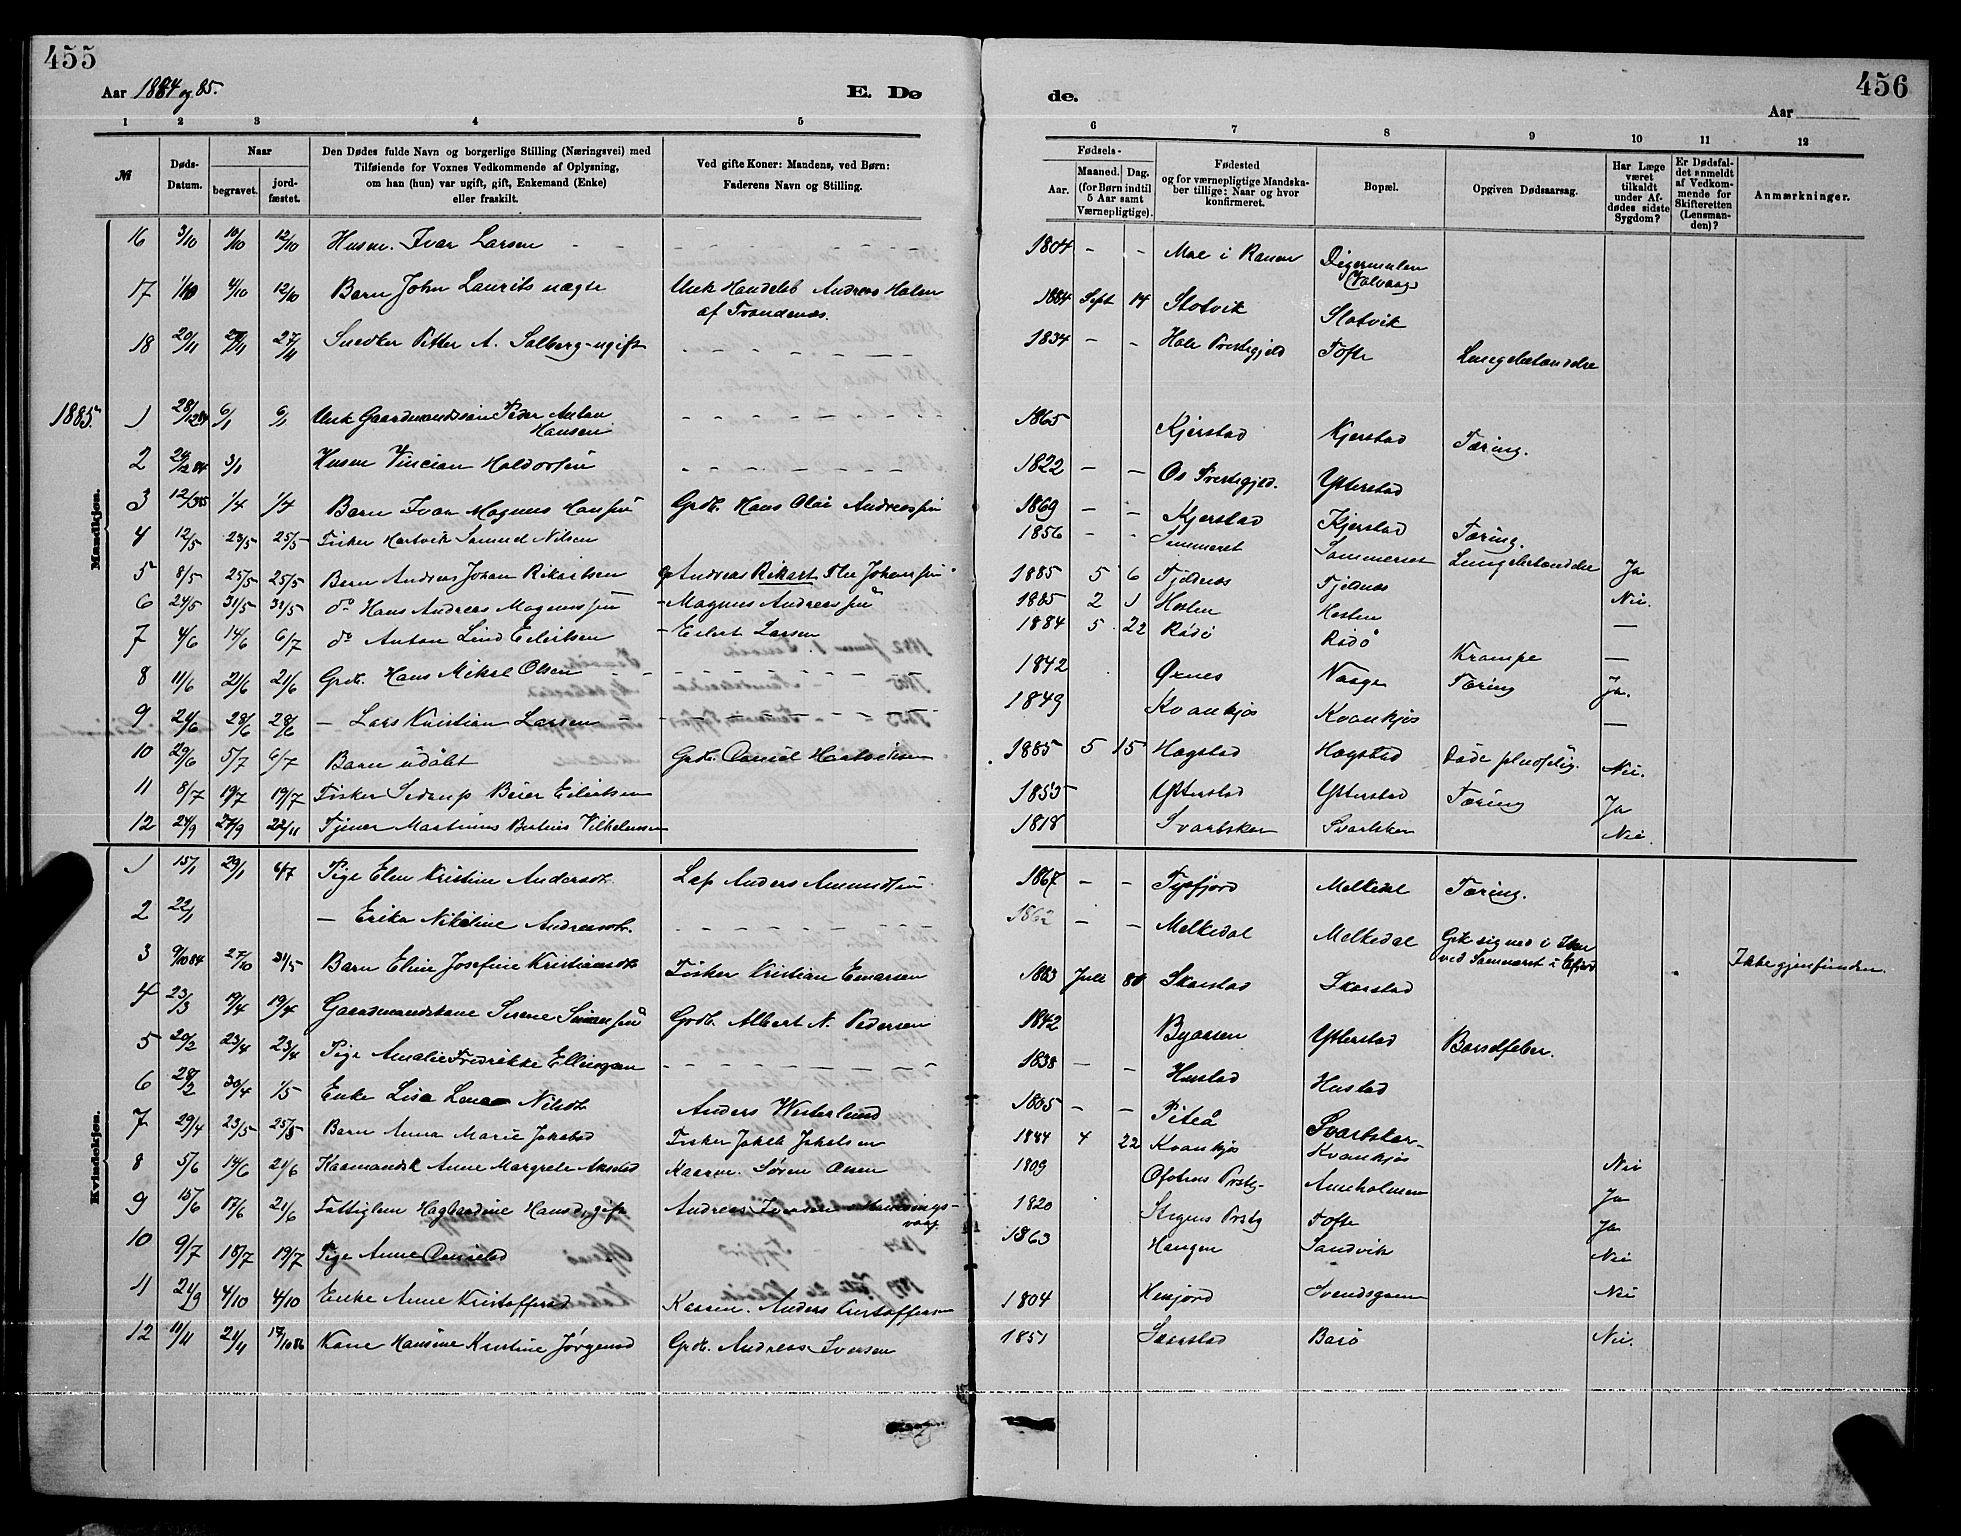 455
456
Aar 1884 og 85.
E. Dø
de.
Aar
1 2 3 4 5
6 7 8 9 10 11 12
№
Døds-Datum.
Naar
begravet.
jord-fæstet.
Den Dødes fulde Navn og borgerlige Stilling (Næringsvei) med
Tilføiende for Voxnes Vedkommende af Oplysning,
om han (hun) var ugift, gift, Enkemand (Enke)
eller fraskilt.
Ved gifte Koner: Mandens, ved Børn:
Faderens Navn og Stilling.
Fødsels-
Aar.
Maaned. Dag.
(for Børn indtil
5 Aar samt
Værnepligtige).
Fødested
og for værnepligtige Mandska-
ber tillige: Naar og hvor
konfirmeret.
Bopæl.
Opgiven Dødsaarsag.
Har Læge
været
tilkaldt
under Af-
dødes sidste
Sygdom?
Er Dødsfal-
det anmeldt
af Vedkom-
mende for
Skifteretten
(Lensman-
den)?
Anmærkninger.
Mandkjøn.
16 3/10 10/10 12/10 Husm. Ivar Larsen - - - 1804 - - Moe i Ranen Digermulen
(Valvaag)
17 1/10 4/10 12/10 Barn John Laurits uægte Unk Handelsb Andreas Holm 1884 Sept 14 Slotvik Slotvik
af Trondenæs.
18 20/11 27/11 Snedker Petter A. Salberg - ugift 1834 - - Hole Prestegjeld Tofte Lungebetændelse
1885.
1 28/12 84 6/1 6/1 Unk Gaardmandssøn Peder Anton 1865 Kjerstad Kjerstad Tæring.
Hansen
2 3/1 Husm Haldorsen 1822 - - Os Prestegjeld. Ytterstad
3 12/3 85 1/4 1/4 Barn Ivar Magnus Hansen Grdb. Hans Olai Andreassen 1869 - - Kjerstad Kjerstad Tæring.
4 12/5 23/5 25/5 Fisker Hartvik Samuel Nilsen 1856 - - Sommeret Sommeret Lungebetændelse Ja
5 8/5 25/5 25/5 Barn Andreas Johan Rikartsen Andreas Rikart Johansen 1885 5 6 Fjeldnæs Fjeldnæs Nei.
6 24/5 31/5 31/5 do Hans Andreas Magnussen - Magnus Andreassen 1885 2 1 Hesten Hesten —
7 4/6 14/6 6/7 do Anton Lind Eilertsen - Eilert Larsen 1884 5 22 Rødø Rødø Krampe —
8 11/6 21/6 21/6 Grdb. Hans Mikal Olsen 1842 Øxnes Vaage Tæring Ja.
9 24/6 28/6 28/6 - Lars Kristian Larsen 1849 Kvankjøs Kvankjøs —
10 29/6 5/7 6/7 Barn udøbt Grdb. Daniel Hartviksen 1885 5 15 Hægstad Hægstad Døde pludselig. Nei.
11 8/7 19/7 19/7 Fisker Beier Eilertsen 1853 Ytterstad Ytterstad Tæring Ja
12 24/9 27/9 22/11 Tjener Martinus Vilhelmsen 1818 Svartskar Svartskar Nei.
Kvindekjøn.
1 15/1 29/1 Pige Elen Kristine Andersdt. Lap Anders Amundsen 1867 - - Tysfjord Melkedal Tæring.
2 22/1 - Erika Nikoline Andersdt. 1862 - - Melkedal Melkedal
3 9/10 84 27/10 31/5 Barn Eline Josefine Kristiansdt Fisker Kristian Einarsen 1883 Juli Skarstad Skarstad Ikke gjenfunden.
ved Sommeret i Efjord
4 23/3 19/4 19/4 Gaardmandskone Serene Simonsen Grdb. Albert N. Pedersen 1842 Byaasen Ytterstad Barselfeber.
5 20/2 23/4 23/4 Pige Amalie Fredrikke Ellingsen 1838 - - Hustad Hustad
6 28/2 30/4 1/5 Enke Lisa Lena Nilsdt Anders Westerlund 1805 - - Piteå Svartskar
7 29/4 23/5 25/5 Barn Anna Marie Jakobsd Fisker Jakob Jakobsen 1884 4 22 Kvankjøs Kvankjøs Nei
8 5/6 14/6 21/6 Anne Margrete Kaarm. Søren Olsen 1809 Ofotens Prstg. Anneholmen Ja
9 15/6 17/6 21/6 Fattiglem Hagbardine Hansd, gift Andreas Iversen Hanningsvaag 1820 Stegens Prstg Tofte Ja
10 9/7 18/7 19/7 Pige Anne Danielsd 1863 Haugen Sandvik Nei
11 24/9 4/10 4/10 Enke Anne Kristoffersd Kaarm. Anders Kristoffersen 1804 Svendsgaam Nei
12 11/11 21/11 17/10 86 Kone Hansine Kristine Jørgensd Grdb. Andreas Iversen 1851 Skarstad Barø Nei.